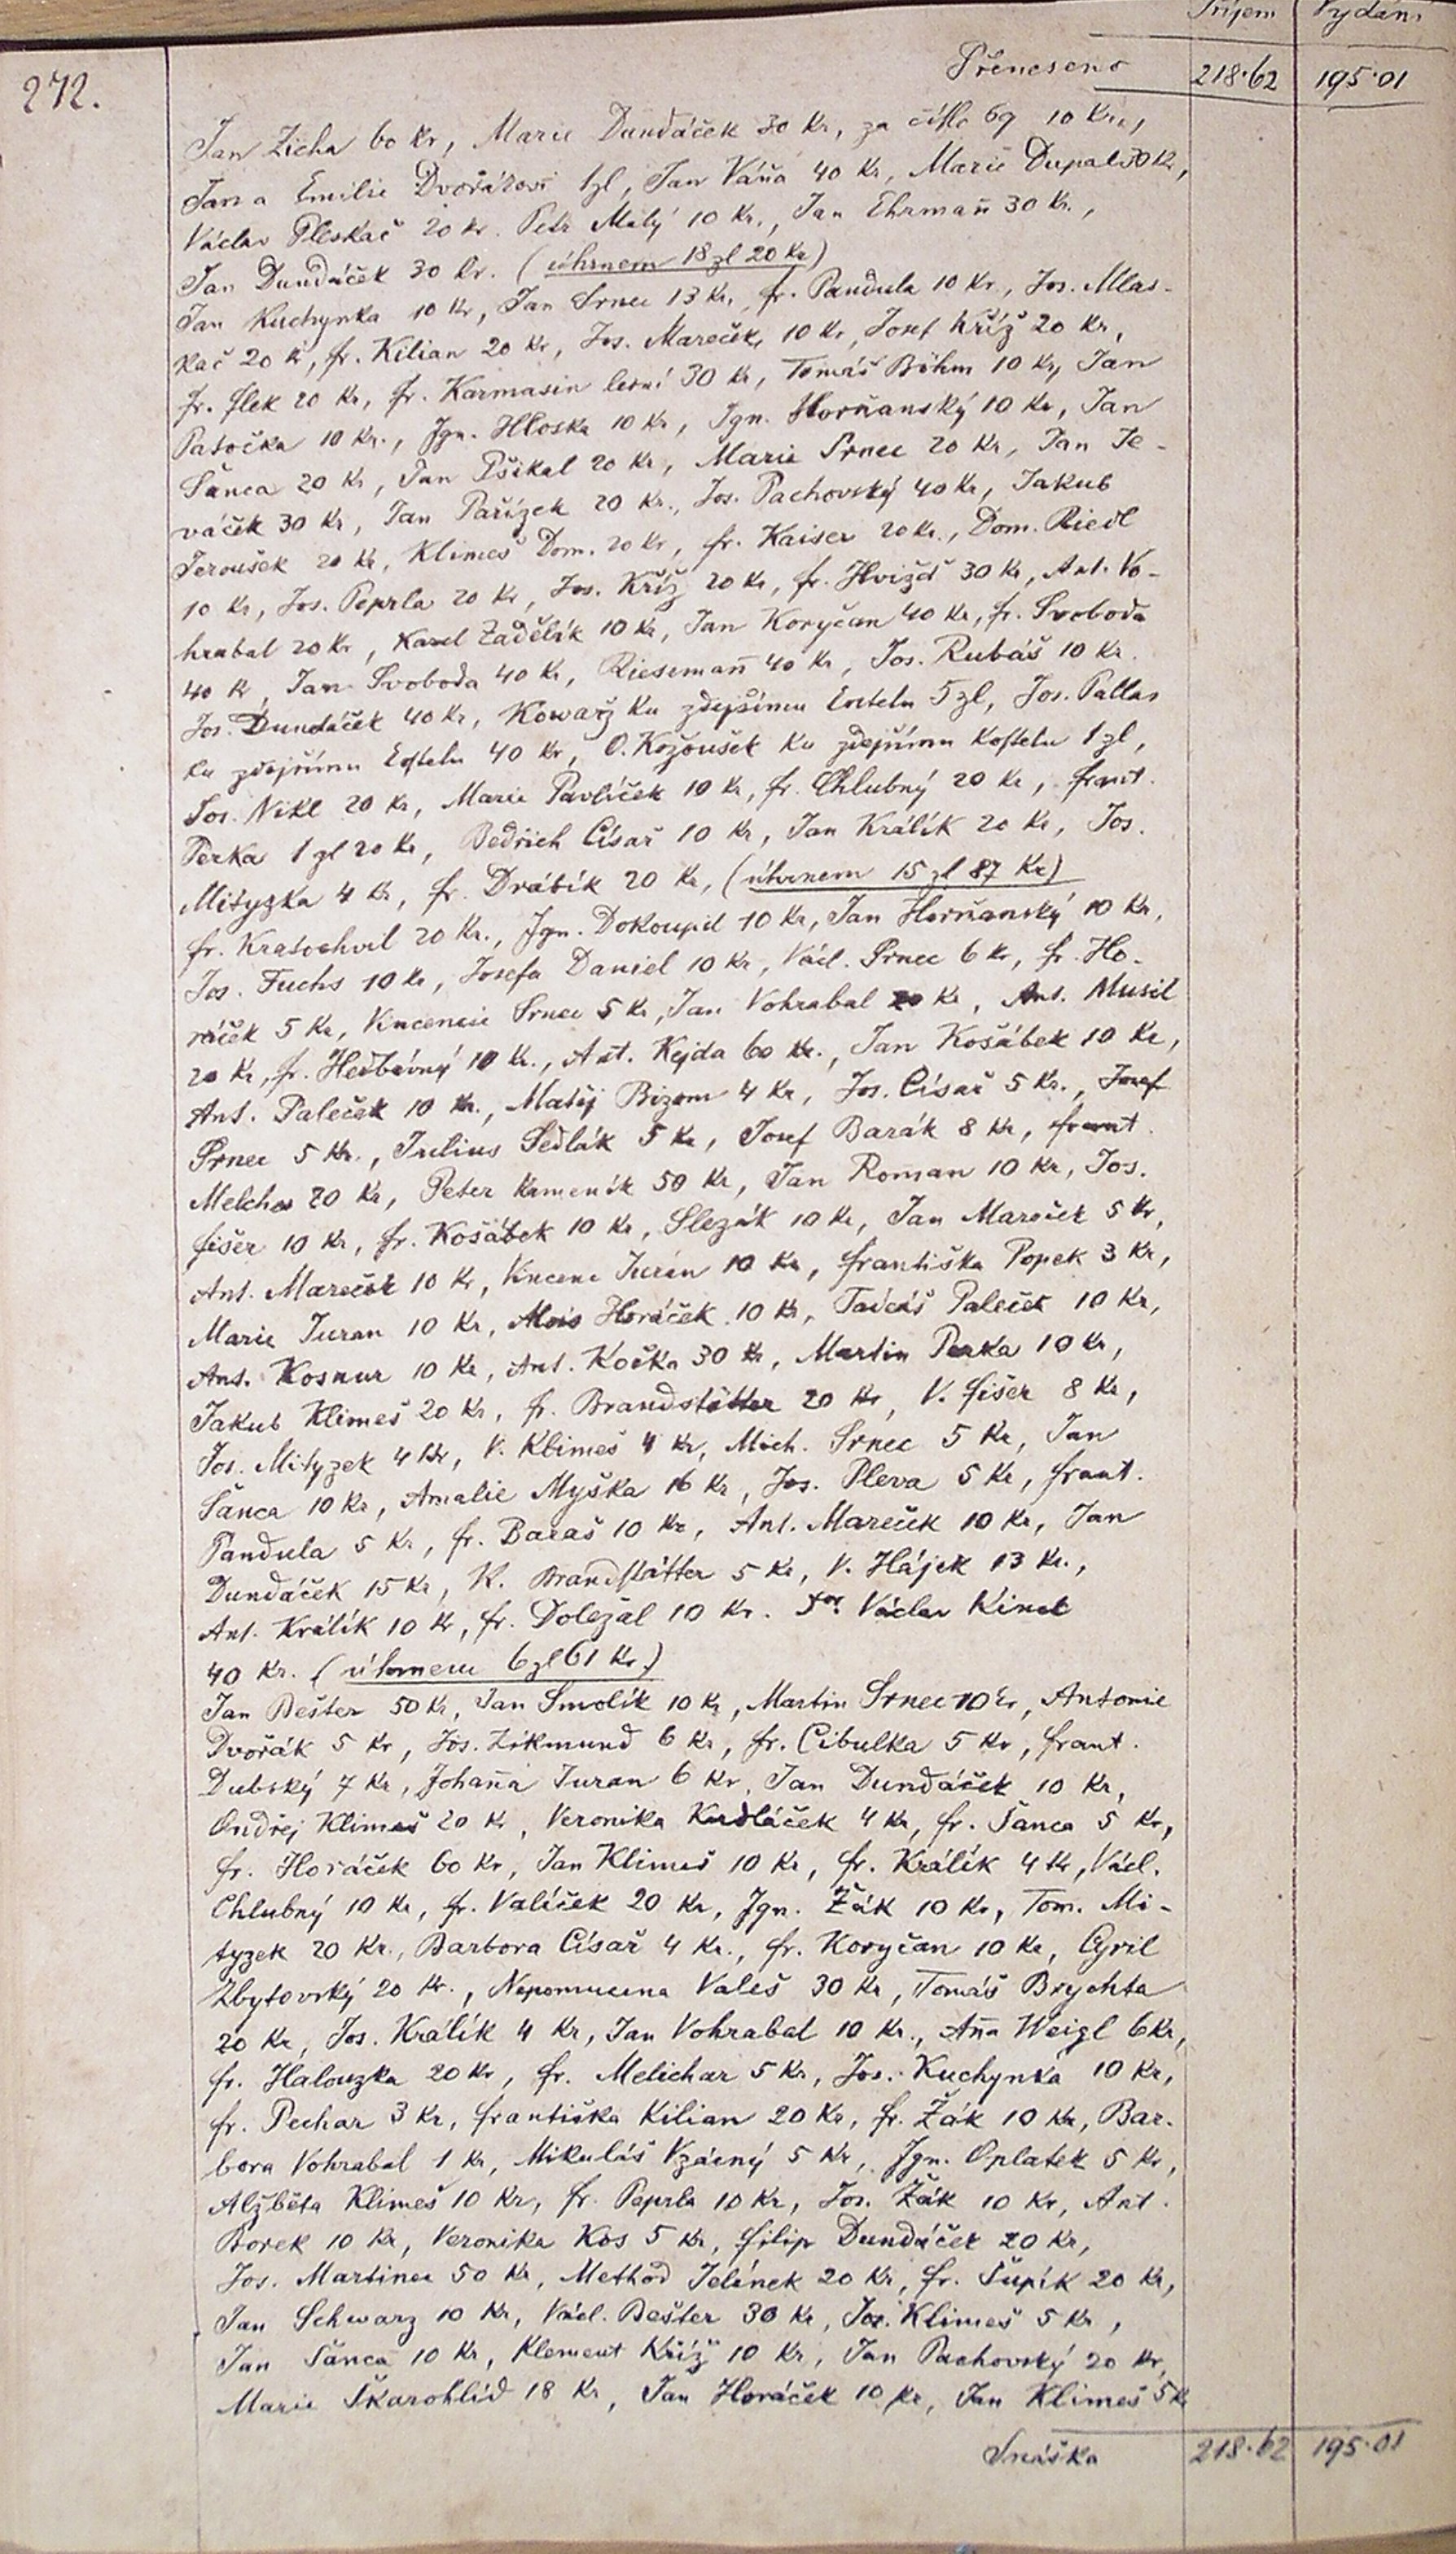 Příjem Vydání
272. Přeneseno 218·62 195·01
Jan Zicha 60 kr, Marie Dundáček 30 kr, za číslo 69 10 kr,
Jan a Emilie Dvořákovi 1 zl, Jan Váňa 40 kr, Marie Dupal 50 kr,
Václav Pleskač 20 kr. Petr Malý 10 kr., Jan Ehrmann̄ 30 kr.,
Jan Dundáček 30 kr. (úhrnem 18 zl 20 kr)
Jan Kuchynka 10 kr, Jan Srnec 13 kr, fr. Pandula 10 kr, Jos. Mlas-
kač 20 kr, fr. Kilian 20 kr, Jos. Mareček 10 kr, Josef Kříž 20 kr,
fr. flek 20 kr, fr. Karmasin lesní 30 kr, Tomáš Böhm 10 kr, Jan
Patočka 10 kr., Jgn. Hloska 10 kr, Ign. Horňanský 10 kr, Jan
Šanca 20 kr, Jan Pšikal 20 kr, Marie Srnec 20 kr, Jan Je-
váček 30 kr, Jan Pařízek 20 kr., Jos. Pachovský 40 kr, Jakub
Jeroušek 20 kr, Klimeš Dom. 20 kr, fr. Kaiser 20 kr., Dom. Riedl
10 kr, Jos. Peprla 20 kr, Jos. Kříž 20 kr, fr. Hvižď 30 kr, Ant. Vo-
hrabal 20 kr, Karel Zadělák 10 kr, Jan Koryčan 40 kr, fr. Svoboda
40 kr, Jan Svoboda 40 kr, Rieseman̄ 40 kr, Jos. Rubáš 10 kr.
Jos. Dundáček 40 kr, Kowař ku zdejšímu kostelu 5 zl, Jos. Pallas
ku zdejšímu kostelu 40 kr, O. Kožoušek ku zdejšímu kostelu 1 zl,
Jos. Nikl 20 kr, Marie Pavlíček 10 kr, fr. Chlubný 20 kr, frant.
Perka 1 zl 20 kr, Bedřich Císař 10 kr, Jan Králík 20 kr, Jos.
Mityzka 4 kr, fr. Drábík 20 kr, (úhrnem 15 zl 87 kr)
fr. Kratochvil 20 kr., Jgn. Dokoupil 10 kr, Jan Horňanský 10 kr,
Jos. Fuchs 10 kr, Josefa Daniel 10 kr, Václ. Srnec 6 kr, fr. Ho-
ráček 5 kr, Vincencie Srnec 5 kr, Jan Vohrabal 20 kr, Ant. Musil
20 kr, fr. Hedbávný 10 kr., Ant. Kejda 60 kr., Jan Košábek 10 kr,
Ant. Paleček 10 kr., Matěj Bizom 4 kr, Jos. Císař 5 kr., Josef
Srnec 5 kr., Julius Sedlák 5 kr, Josef Barák 8 kr, frant.
Melcher 20 kr, Peter Kameník 50 kr, Jan Roman 10 kr, Jos.
fišer 10 kr, fr. Košábek 10 kr, Slezák 10 kr, Jan Mareček 5 kr,
Ant. Mareček 10 kr, Vincenc Juran 10 kr, františka Popek 3 kr,
Marie Juran 10 kr, Alois Horáček 10 kr, Tadeáš Paleček 10 kr,
Ant. Kosnur 10 kr, Ant. Kočka 30 kr, Martin Perka 10 kr,
Jakub Klimeš 20 kr, fr. Brandstätter 20 kr, V. fišer 8 kr,
Jos. Mityzek 4 kr, V. Klimeš 4 kr, Mich. Srnec 5 kr, Jan
Šanca 10 kr, Amalie Myška 16 kr, Jos. Pleva 5 kr, frant.
Pandula 5 kr, fr. Baraš 10 kr, Ant. Mareček 10 kr, Jan
Dundáček 15 kr, K. Brandstätter 5 kr, V. Hájek 13 kr.,
Ant. Králík 10 kr, fr. Doležal 10 kr. Václav Kinet
40 kr. (úhrnem 6 zl 61 kr.)
Jan Bešter 50 kr, Jan Smolík 10 kr, Martin Srnec 10 kr, Antonie
Dvořák 5 kr, Jos. Zikmund 6 kr, fr. Cibulka 5 kr, frant.
Dubský 7 kr, Johan̄a Juran 6 kr, Jan Dundáček 10 kr,
Ondřej Klimeš 20 kr, Veronika Kudláček 4 kr, fr. Šanca 5 kr,
fr. Horáček 60 kr, Jan Klimeš 10 kr, fr. Králík 4 kr, Václ.
Chlubný 10 kr, fr. Valíček 20 kr, Jgn. Žák 10 kr, Tom. Mi-
tyzek 20 kr., Barbora Císař 4 kr., fr. Koryčan 10 kr, Cyril
Zbytovský 20 kr., Nepomucena Valeš 30 kr, Tomáš Brychta
20 kr, Jos. Králík 4 kr, Jan Vohrabal 10 kr., An̄a Weigl 6 kr,
fr. Halouzka 20 kr, fr. Melichar 5 kr, Jos. Kuchynka 10 kr,
fr. Pechar 3 kr, františka Kilian 20 kr, fr. Žák 10 kr, Bar-
bora Vohrabal 1 kr, Mikuláš Vzácný 5 kr, Jgn. Oplatek 5 kr,
Alžběta Klimeš 10 kr, fr. Peprla 10 kr, Jos. Žák 10 kr, Ant.
Borek 10 kr, Veronika Kos 5 kr, filip Dundáček 20 kr,
Jos. Martinec 50 kr, Method Jelínek 20 kr, fr. Šupík 20 kr,
Jan Schwarz 10 kr, Václ. Bešter 30 kr, Joz. Klimeš 5 kr,
Jan Šanca 10 kr, Klement Kříž 10 kr, Jan Pachovský 20 kr,
Marie Škarohlíd 18 kr, Jan Horáček 10 kr, Jan Klimeš 5 kr
Snáška 218·62 195·01